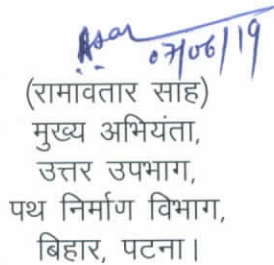 07/06/19
(रामावतार साह)
मुख्य अभियंता,
उत्तर उपभाग,
पथ निर्माण विभाग,
बिहार, पटना।